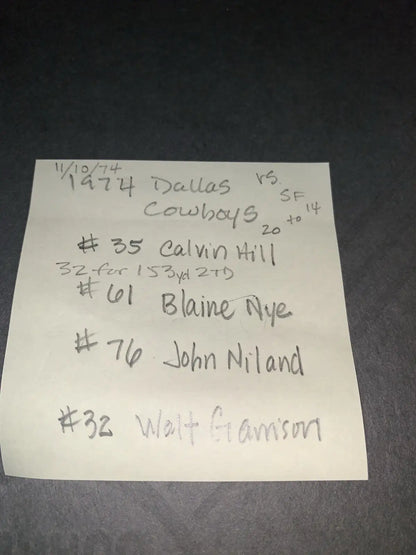 11/10/74
1974 Dallas vs. SF
Cowboys 20 to 14
# 35 Calvin Hill
32 for 153yd 2TD
# 61 Blaine Nye
# 76 John Niland
#32 Walt Garrison